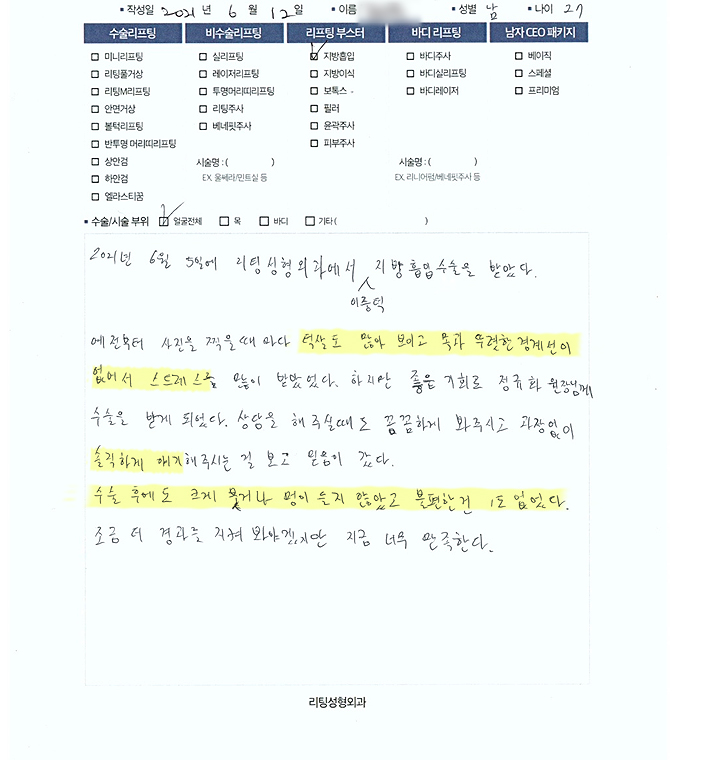 ▪ 작성일 2021 년 6 월 12 일 ▪ 이름 ▪ 성별 남 ▪ 나이 27
수술리프팅 비수술리프팅 리프팅 부스터 바디 리프팅 남자 CEO 패키지
□ 미니리프팅 □ 실리프팅 ☑ 지방흡입 □ 바디주사 □ 베이직
□ 리팅풀거상 □ 레이저리프팅 □ 지방이식 □ 바디실리프팅 □ 스페셜
□ 리팅M리프팅 □ 투명머리띠리프팅 □ 보톡스 - □ 바디레이저 □ 프리미엄
□ 안면거상 □ 리팅주사 □ 필러
□ 볼턱리프팅 □ 베네핏주사 □ 윤곽주사
□ 반투명 머리띠리프팅 □ 피부주사
□ 상안검 시술명 : ( ) 시술명 : ( )
□ 하안검 EX. 울쎄라/민트실 등 EX. 리니어펌/베네핏주사 등
□ 엘라스티꿈
▪ 수술/시술 부위 ☑ 얼굴전체 □ 목 □ 바디 □ 기타 ( )
2021년 6월 5일에 리팅성형외과에서 지방흡입수술을 받았다.
이중턱
예전부터 사진을 찍을때 마다 턱살도 많아 보이고 목과 뚜렷한 경계선이
없어서 스트레스를 많이 받았었다. 하지만 좋은 기회로 정규화 원장님께
수술을 받게 되었다. 상담을 해주실때도 꼼꼼하게 봐주시고 과장없이
솔직하게 얘기해주시는 걸 보고 믿음이 갔다.
수술 후에도 크게 붓거나 멍이 들지 않았고 불편한건 1도 없었다.
조금 더 경과를 지켜 봐야겠지만 지금 너무 만족한다.
리팅성형외과